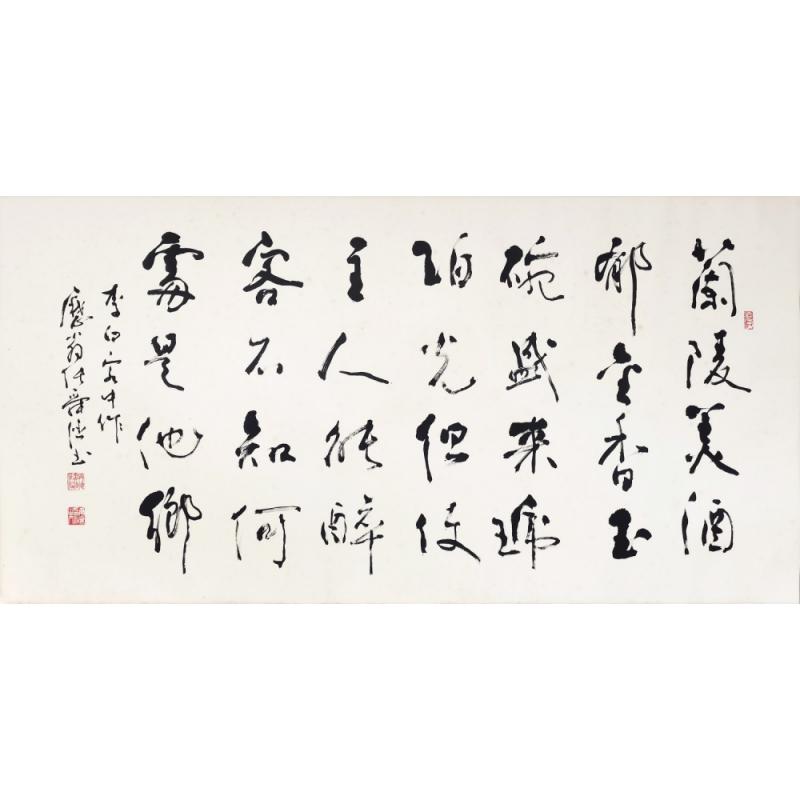 蘭陵美酒
郁金香玉
碗盛来琥
珀光但使
主人能醉
客不知何
處是他鄉
李白客中作
翁任书